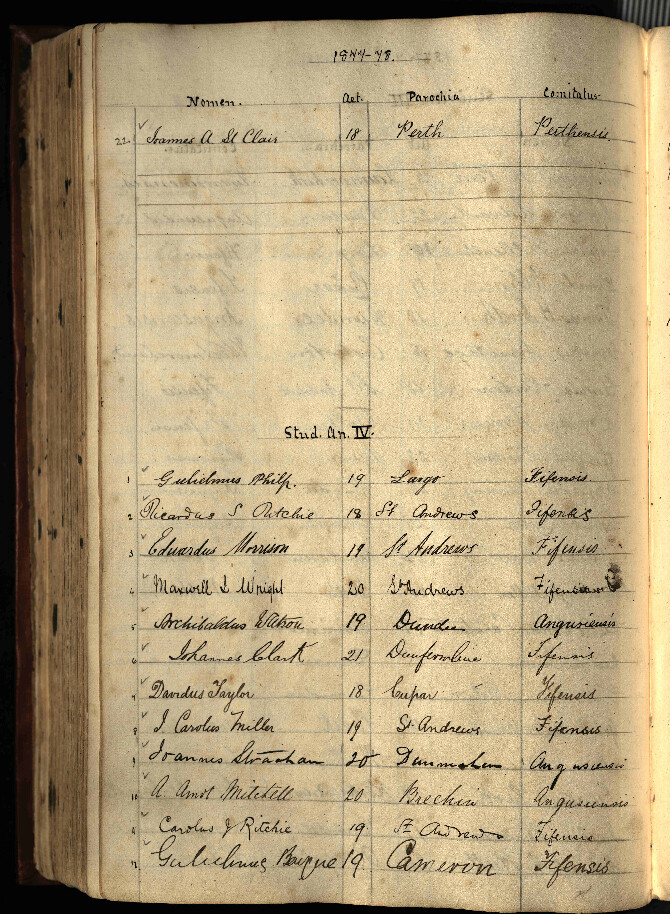 1877-78.
Nomen. Aet. Parochia Comitatus
22. Joannes A St Clair 18 Perth Perthensis
Stud. An. IV.
1 Gulielmus Philp. 19 Largo Fifensis
2 Ricardus S Ritchie 18 St Andrews Fifensis
3 Eduardus Morrison 19 St Andrews Fifensis
4 Maxwell Wright 20 St Andrews
5 Archibaldus Watson 19 Dundee Angusiensis
6 Johannes Clark 21 Dunfermline Fifensis
7 Davidus Taylor 18 Cupar Fifensis
8 J. Carolus Miller 19 St Andrews Fifensis
9 Joannes Strachan 20 Angusiensis
10 A. Arnot Mitchell 20 Brechin Angusiensis
11 Carolus J Ritchie 19 St Andrews Fifensis
12 Gulielmus 19. Cameron Fifensis